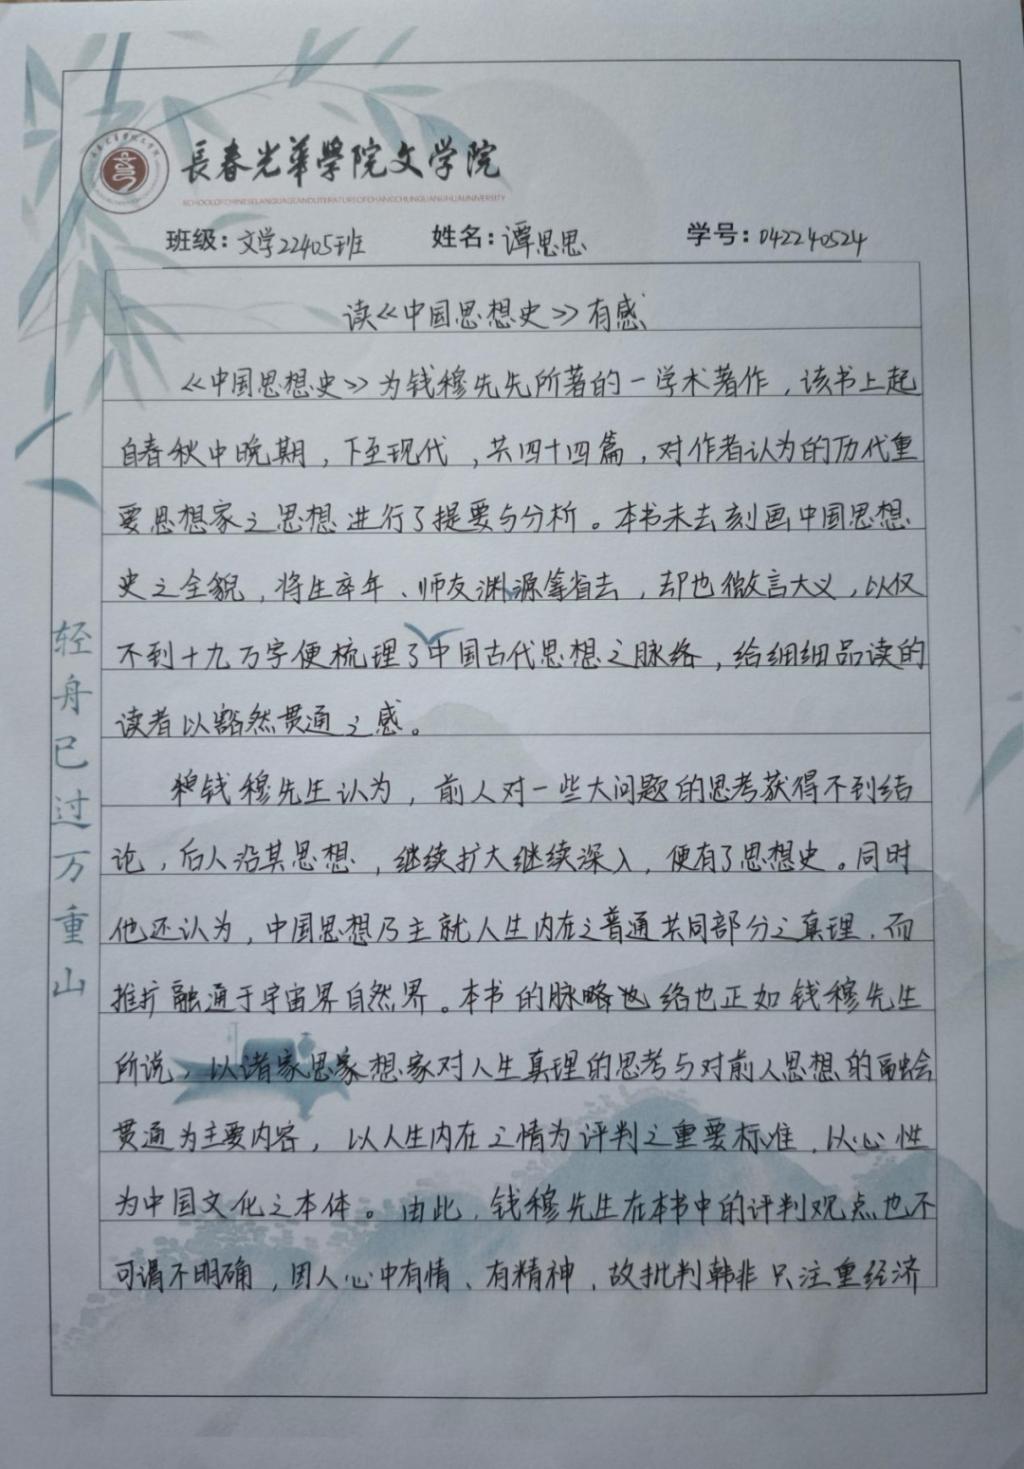 長春光華學院文学院
SCHOOLOFCHINESELANGUAGEANDLITERATUREOFCHANGCHUNGUANGHUAUNIVERSITY
班级：文学22405班 姓名：谭思思 学号：042240524
读《中国思想史》有感
《中国思想史》为钱穆先先所著的一学术著作，该书上起
自春秋中晚期，下至现代，共四十四篇，对作者认为的历代重
要思想家之思想进行了提要与分析。本书未去刻画中国思想
史之全貌，将生卒年、师友渊源等省去，却也微言大义，以仅
不到十九万字便梳理了中国古代思想之脉络，给细细品读的
读者以豁然贯通之感。
钱穆先生认为，前人对一些大问题的思考获得不到结
论，后人沿其思想，继续扩大继续深入，便有了思想史。同时
他还认为，中国思想乃主就人生内在之普通共同部分之真理，而
推扩融通于宇宙界自然界。本书的脉络也正如钱穆先生
所说，以诸家思想家对人生真理的思考与对前人思想的融会
贯通为主要内容，以人生内在之情为评判之重要标准，以心性
为中国文化之本体。由此，钱穆先生在本书中的评判观点也不
可谓不明确，因人心中有情、有精神，故批判韩非只注重经济
轻舟已过万重山